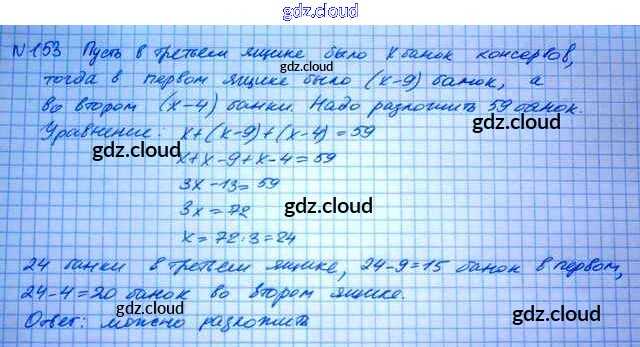 gdz.cloud
N 153 Пусть в третьем ящике было x банок консервов,
gdz.cloud
тогда в первом ящике было (x-9) банок, а
во втором (x-4) банки. Надо разложить 59 банок.
gdz.cloud
Уравнение: x+(x-9)+(x-4)=59
gdz.cloud
x+x-9+x-4=59
gdz.cloud
3x-13=59
3x=72
gdz.cloud
x=72:3=24
24 банки в третьем ящике, 24-9=15 банок в первом,
gdz.cloud
24-4=20 банок во втором ящике.
gdz.cloud
Ответ: можно разложить
gdz.cloud